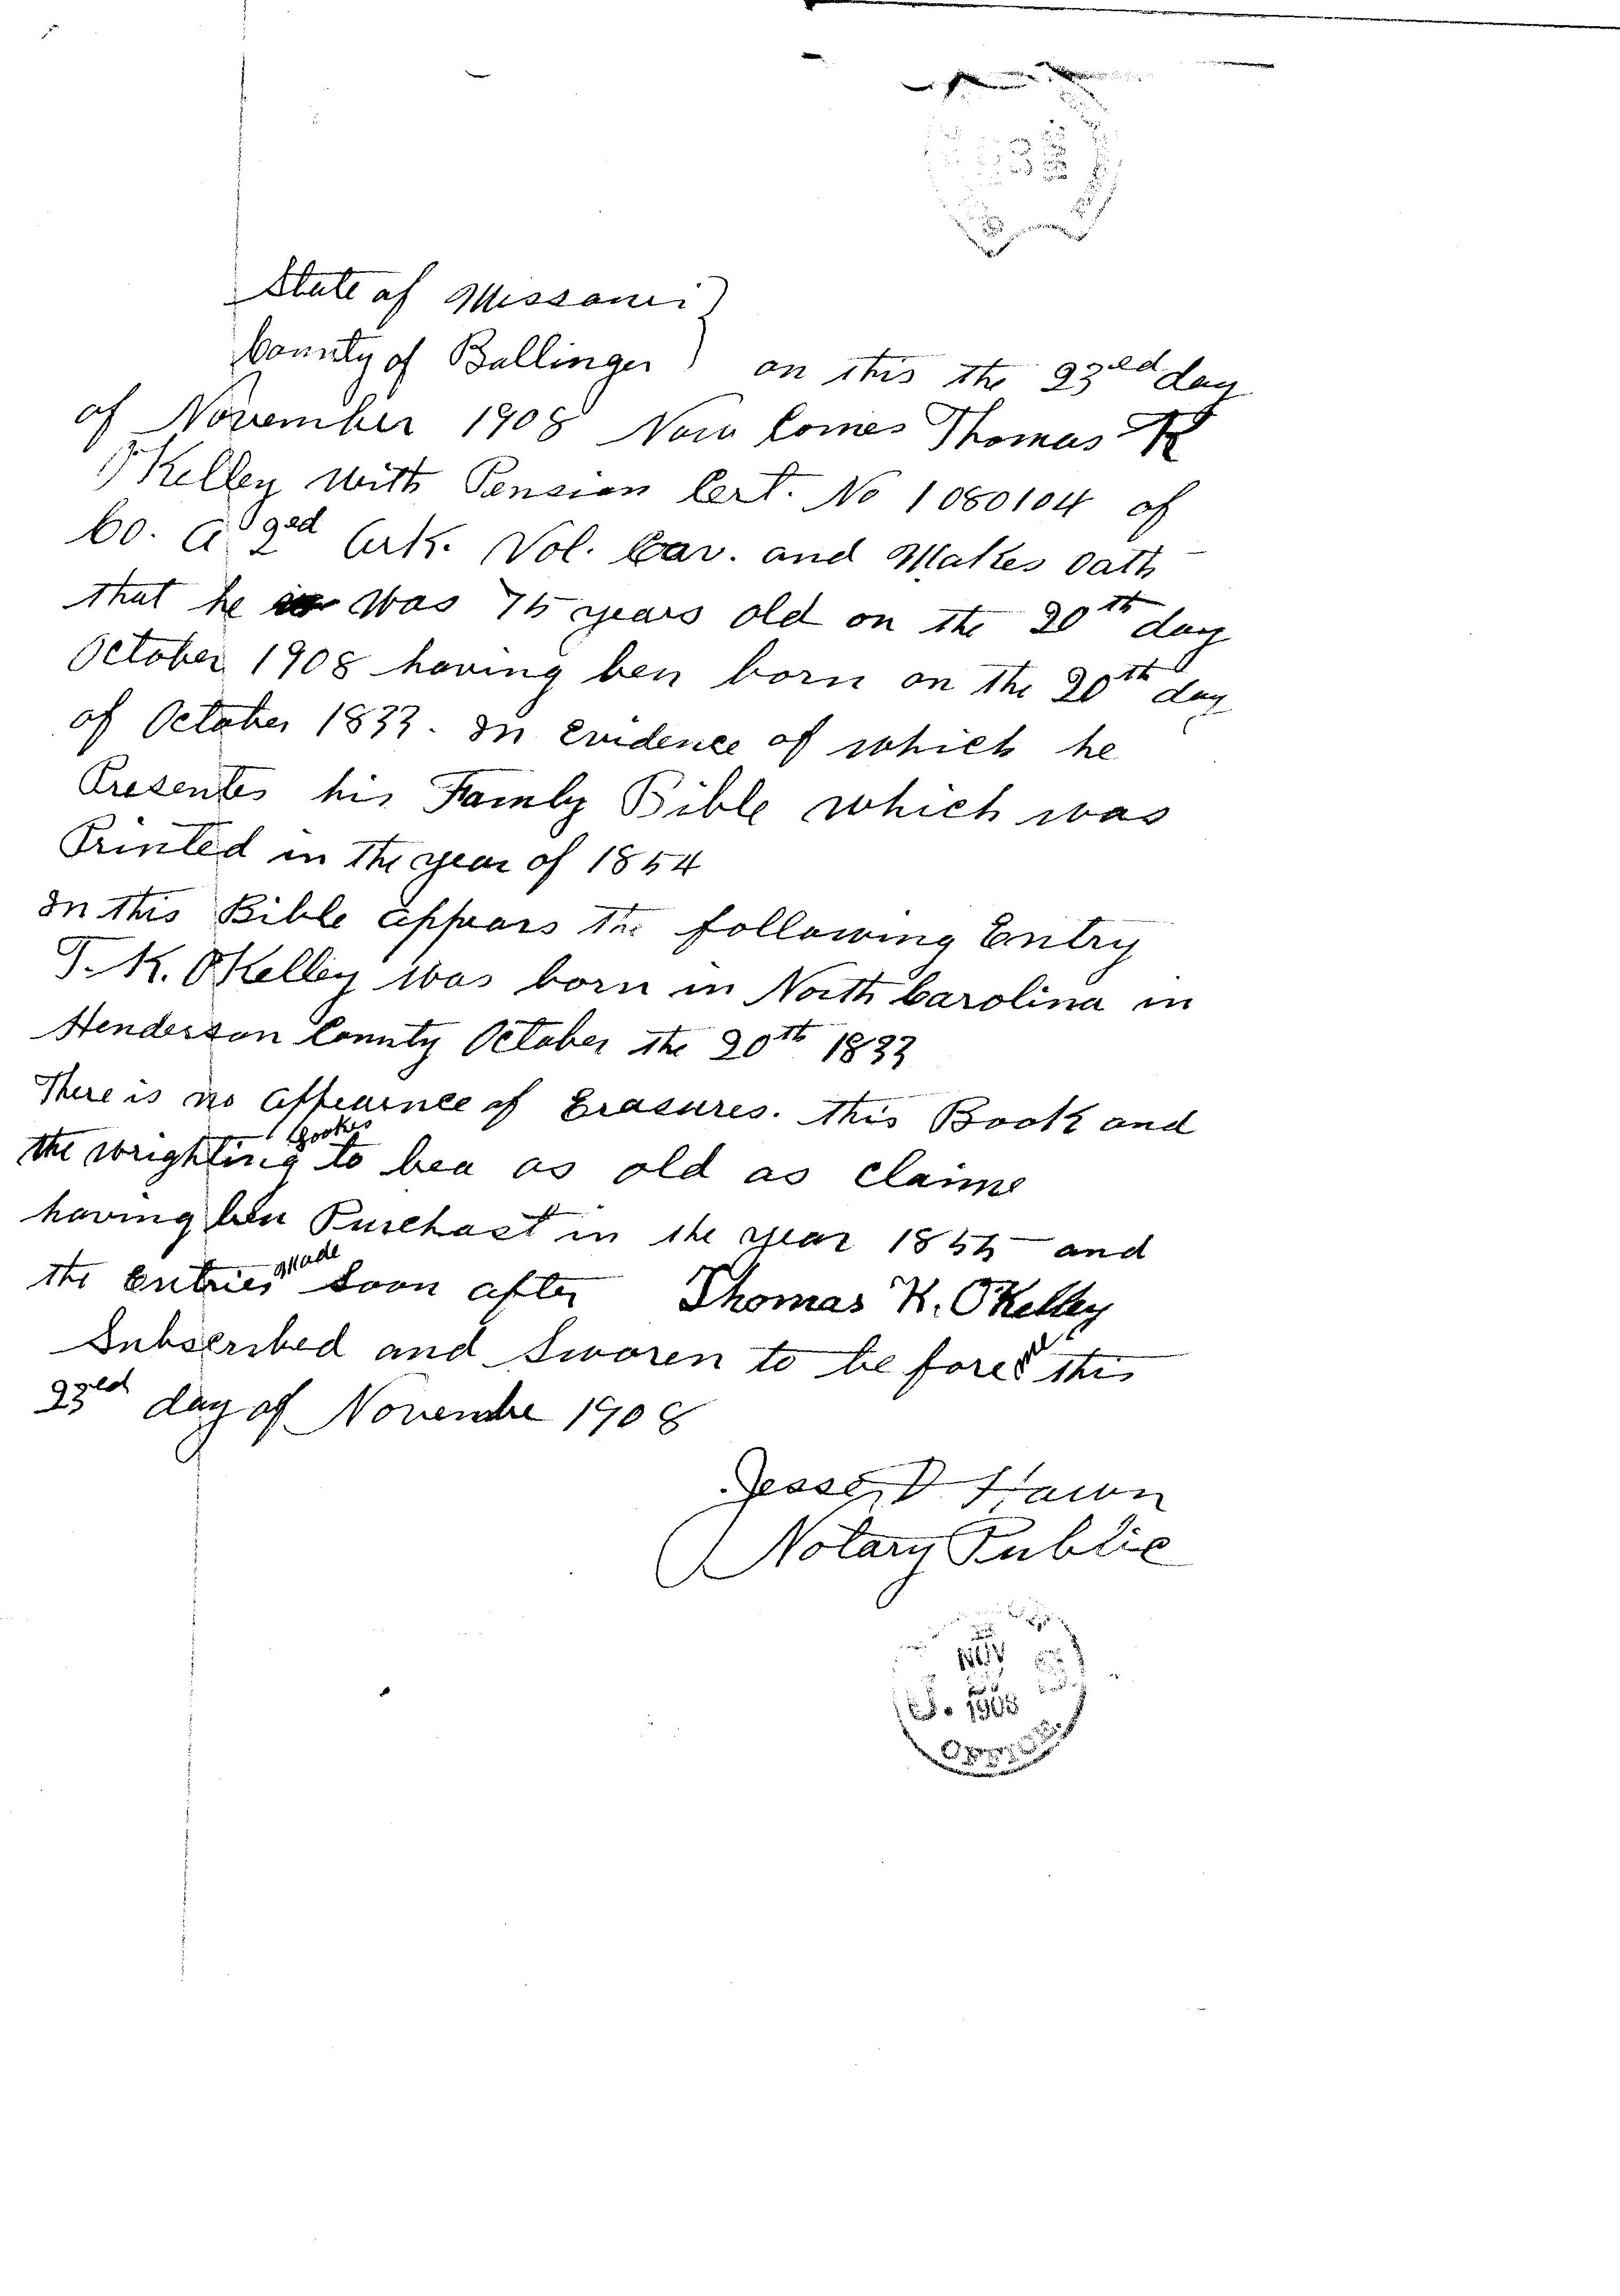 State of Missouri
County of Bollinger on this the 23ed day
of November 1908 Now Comes Thomas K
O'Kelley with Pension Cert. No 1080104 of
Co. A 2ed Ark. Vol. Cav. and Makes Oath
that he was 75 years old on the 20th day
October 1908 having ben born on the 20th day
of October 1833. In Evidence of which he
Presentes his Faimly Bible which was
Printed in the year of 1854
In this Bible appears the following Entry
T. K. OKelley was born in North Carolina in
Henderson County October the 20th 1833
There is no appearnce of Erasures. this Book and
the wrighting Lookes to bea as old as claime
having ben Purchast in the year 1855 and
the Entries Made Soon after Thomas K. OKelley
Subscribed and Sworen to be fore me this
23ed day of Novembe 1908
Jesse D Hawn
Notary Public
NOV
1908
OFFICE